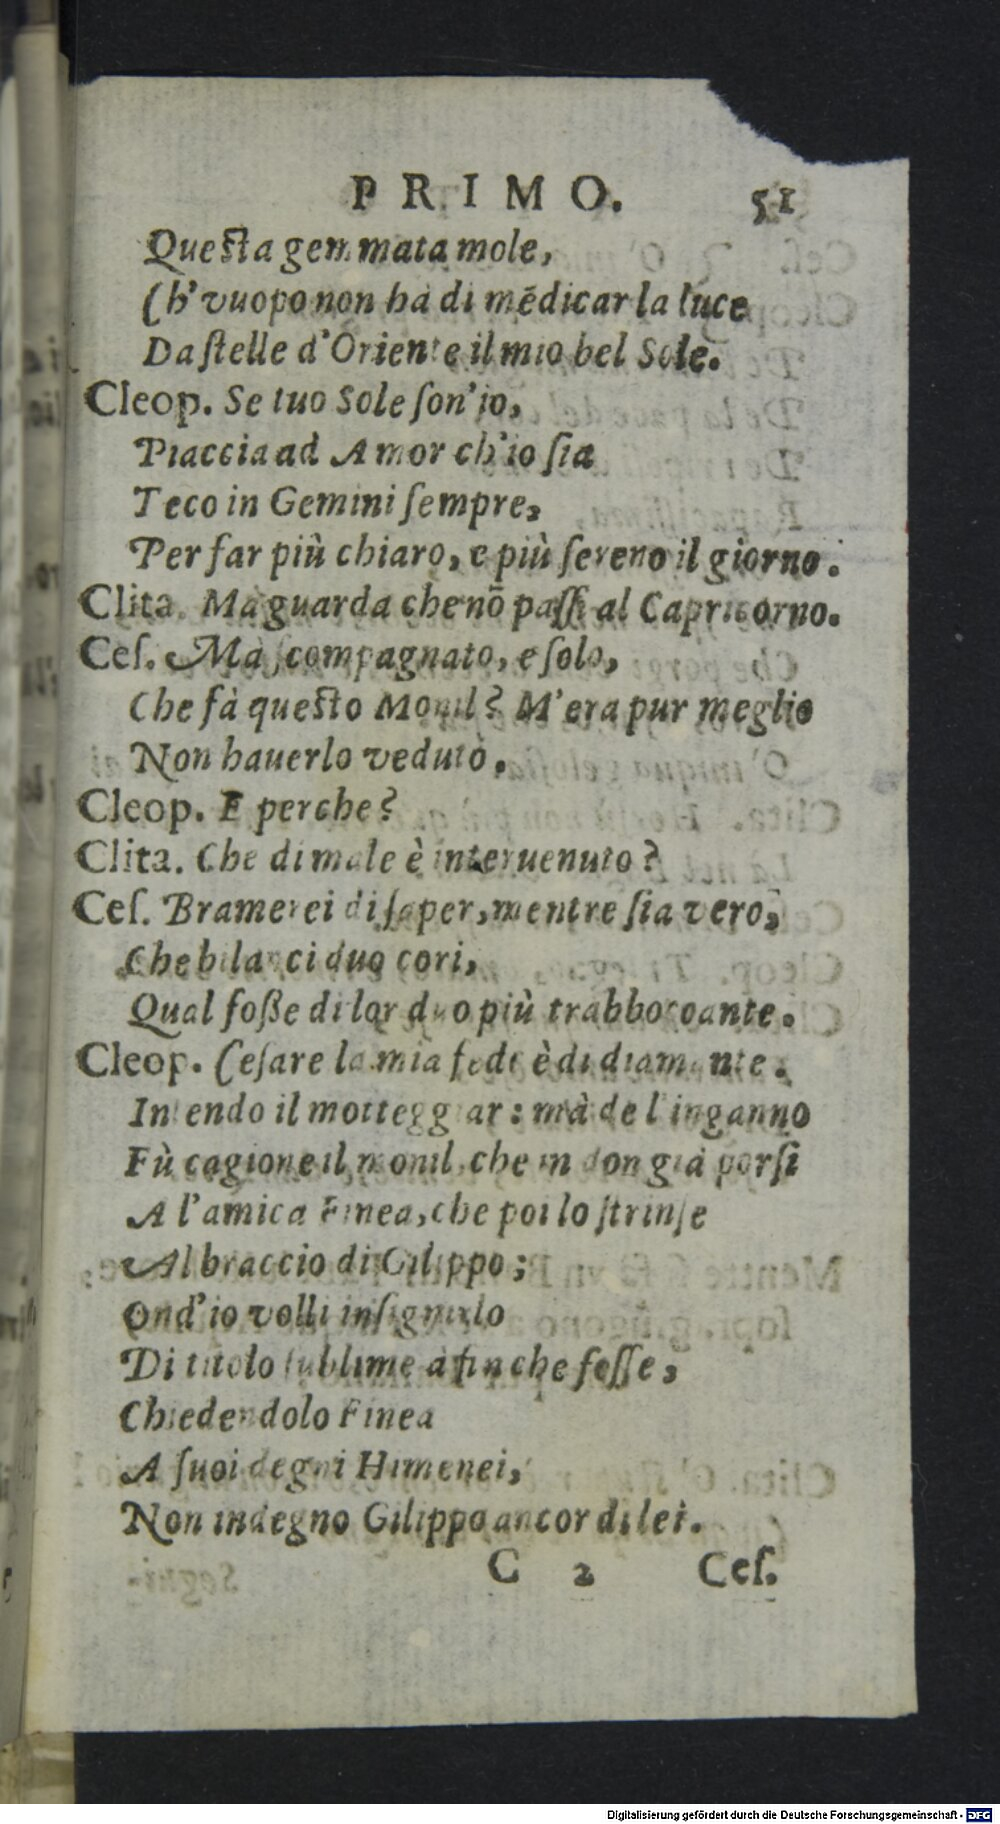 PRIMO. 51
Questa gemmata mole,
Ch'vuopo non ha di mẽdicar la luce
Da ſtelle d'Oriente il mio bel Sole.
Cleop. Se tuo Sole ſon'io,
Piaccia ad Amor ch'io ſia
Teco in Gemini ſempre,
Per far più chiaro, e più ſereno il giorno.
Clita. Ma guarda che nõ paſſi al Capricorno.
Ceſ. Mà ſcompagnato, e ſolo,
Che fà queſto Monil? M'era pur meglio
Non hauerlo veduto.
Cleop. E perche?
Clita. Che di male è interuenuto?
Ceſ. Bramerei di ſaper, mentre ſia vero,
Che bilanci duo cori,
Qual foſſe di lor duo più trabboccante.
Cleop. Ceſare la mia fede è di diamante.
Intendo il motteggiar: mà de l'inganno
Fù cagione il monil, che in don già porſi
A l'amica Finea, che poi lo ſtrinſe
Al braccio di Gilippo;
Ond'io volli inſignirlo
Di titolo ſublime à fin che foſſe,
Chiedendolo Finea
A ſuoi degni Himenei,
Non indegno Gilippo ancor di lei.
C 2 Ceſ.
Digitalisierung gefördert durch die Deutsche Forschungsgemeinschaft - DFG